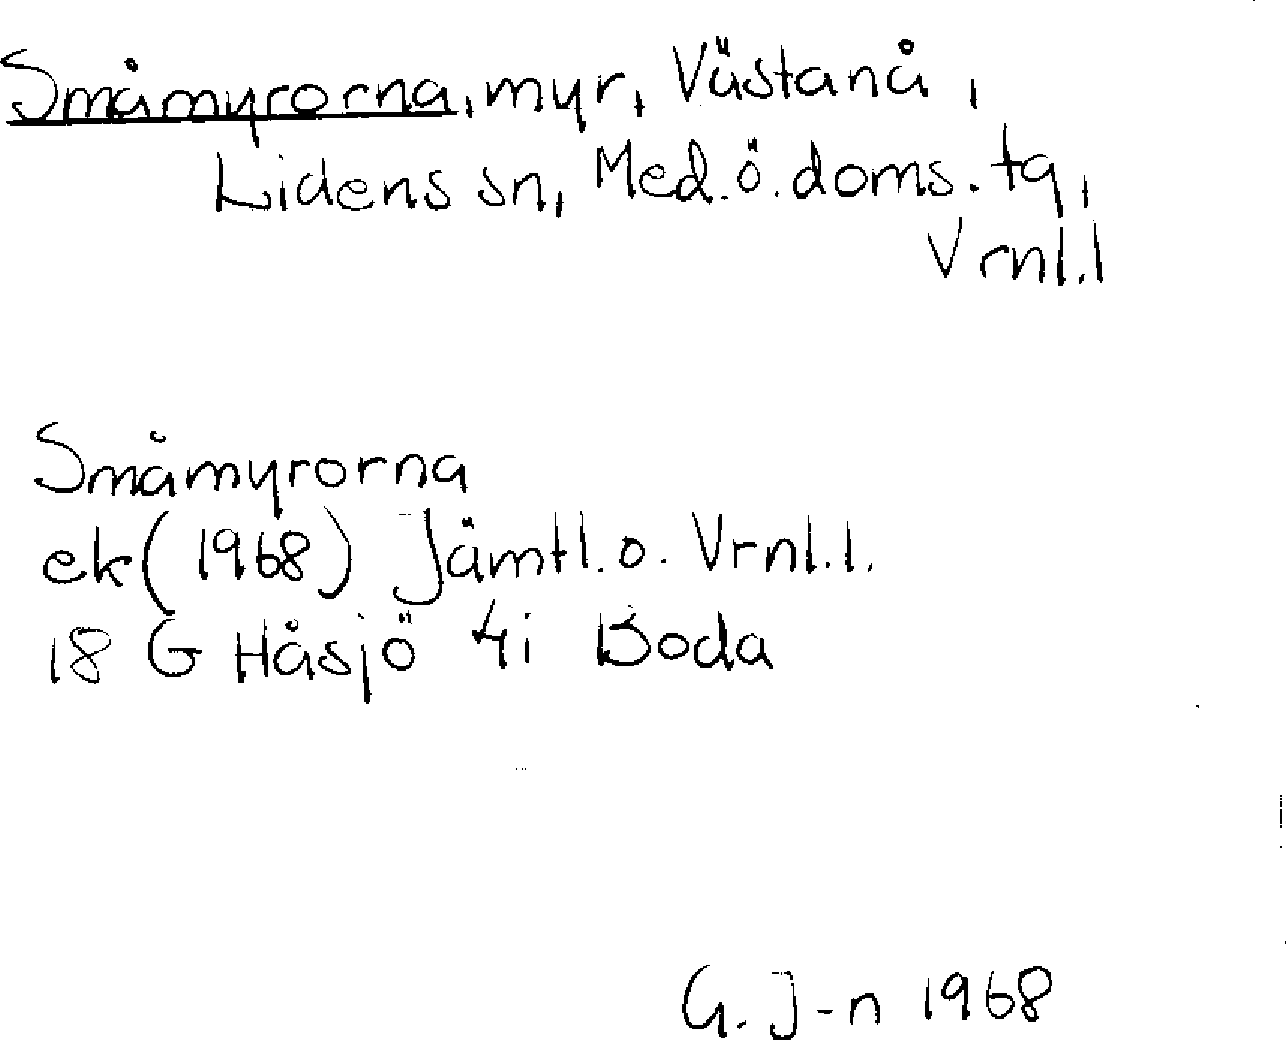 Småmyrorna, myr, Västanå,
Lidens sn, Med. ö. doms. tg,
Vrnl.l
Småmyrorna
ek (1968) Jämtl. o. Vrnl. l.
18 G Håsjö 4i Boda
G. J-n 1968